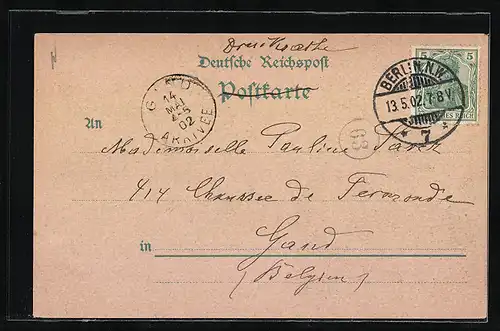 Drucksache
Deutsche Reichspost
Postkarte
5 5
BERLIN, N.W.
13.5.02. 7-8 V.
* 7 *
GAND
14
MAI
4-5
02
ARRIVÉE
63
An
Mademoiselle Pauline
414 Chaussée de Termonde
in Gand
(Belgien)